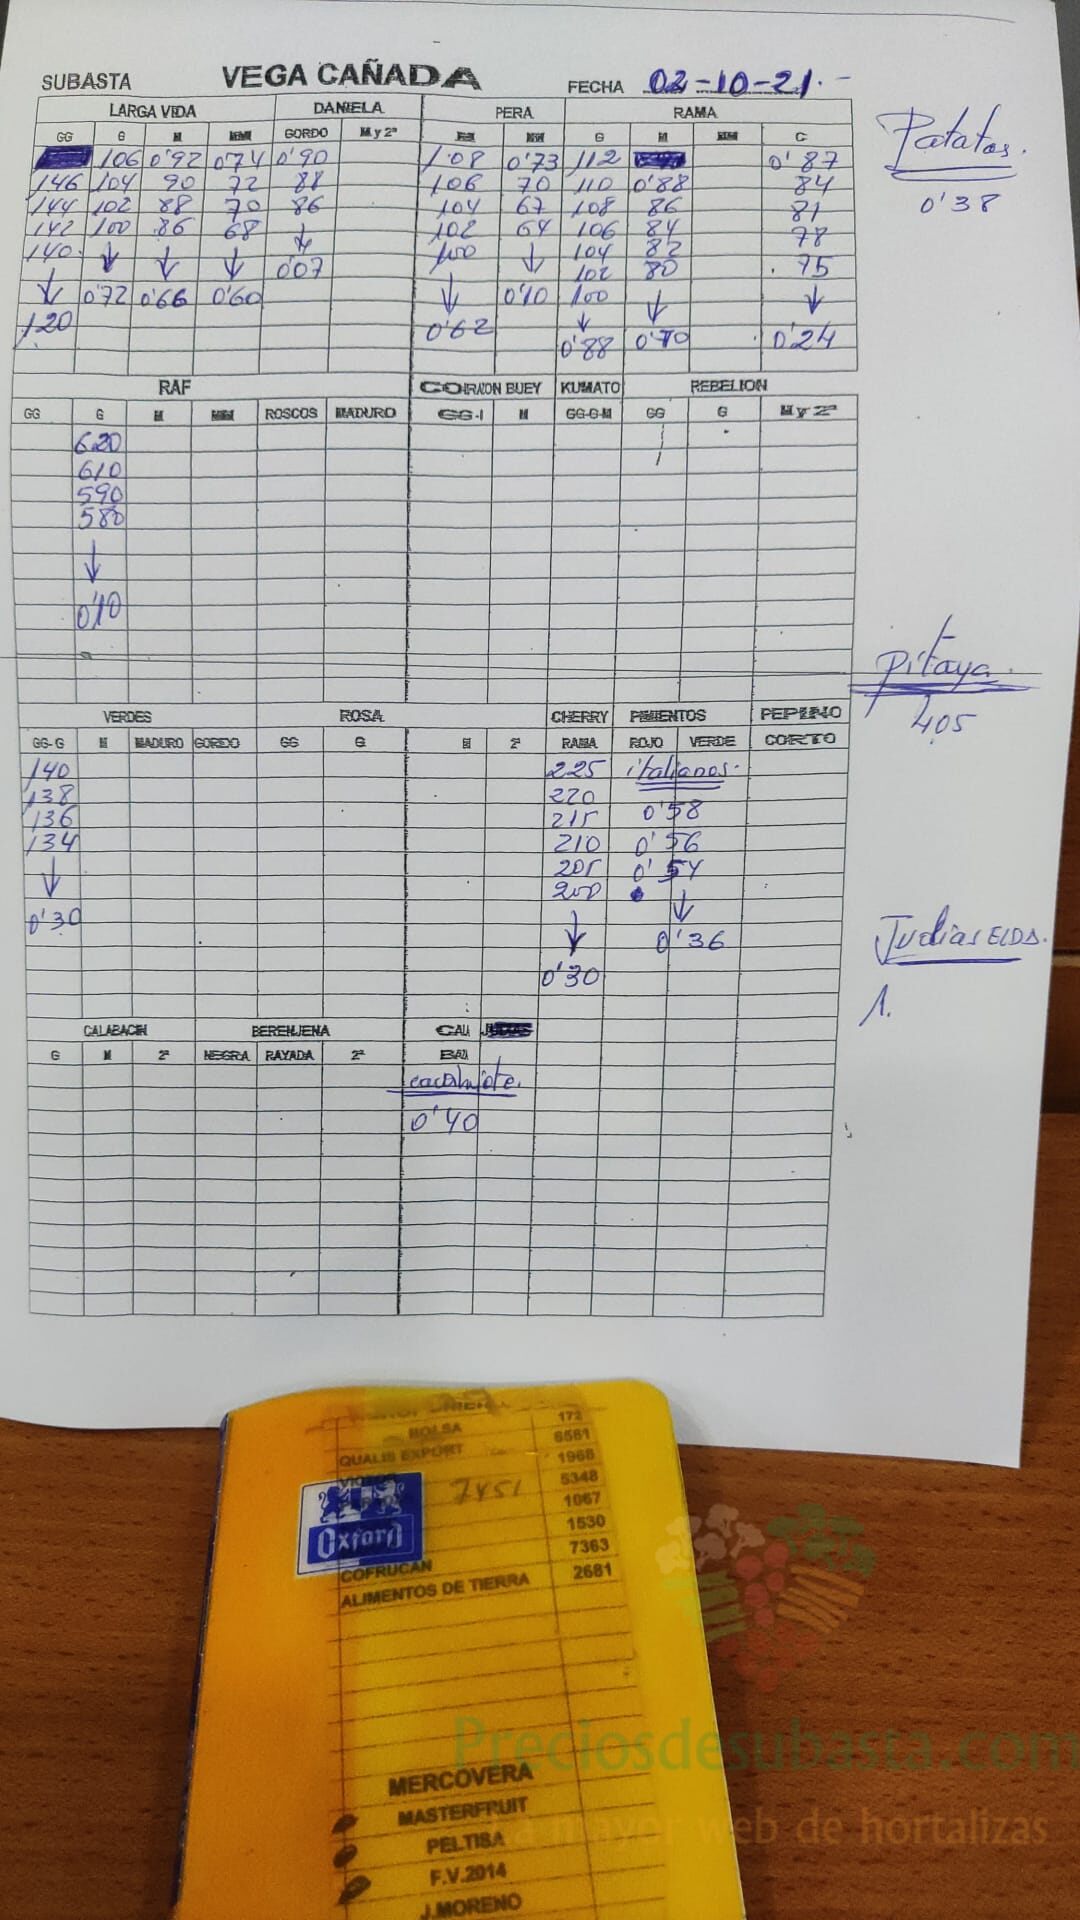 SUBASTA VEGA CAÑADA FECHA 02-10-21.-
LARGA VIDA DANIELA PERA RAMA
GG G M MM GORDO M y 2ª M MM G M MM C
106 0'92 0'74 0'90 1'08 0'73 112 0'87
146 104 90 72 88 106 70 110 0'88 84
144 102 88 70 86 104 67 108 86 81
142 100 86 68 ↓ 102 64 106 84 78
140. ↓ ↓ ↓ 0'07 100 ↓ 104 82 75
102 80
↓ 0'72 0'66 0'60 ↓ 0'10 100 ↓ ↓
120 0'62 ↓
0'88 0'70 0'24
Patatas.
0'38
RAF CORAZON BUEY KUMATO REBELION
GG G M MM ROSCOS MADURO GG-1 M GG-G-M GG G M y 2ª
620
610
590
580
↓
0'10
Pitaya.
405
VERDES ROSA CHERRY PIMIENTOS PEPINO
GG-G M MADURO GORDO GG G M 2ª RAMA ROJO VERDE CORTO
140 225 italianos.
138 220
136 215 0'58
134 210 0'56
↓ 205 0'54
200 ↓
0'30 ↓ 0'36
0'30
Judias ELDA.
1.
CALABACIN BERENJENA CALA
G M 2ª NEGRA RAYADA 2ª BAZA
cacahuete.
0'40
BOLSA 172
6581
QUALIS EXPORT 1968
5348
7451 1067
1530
Oxford 7363
COFRUCAN 2681
ALIMENTOS DE TIERRA
MERCOVERA
MASTERFRUIT
PELTISA
F.V.2014
J.MORENO
Preciosdesubasta.com
a mayor web de hortalizas